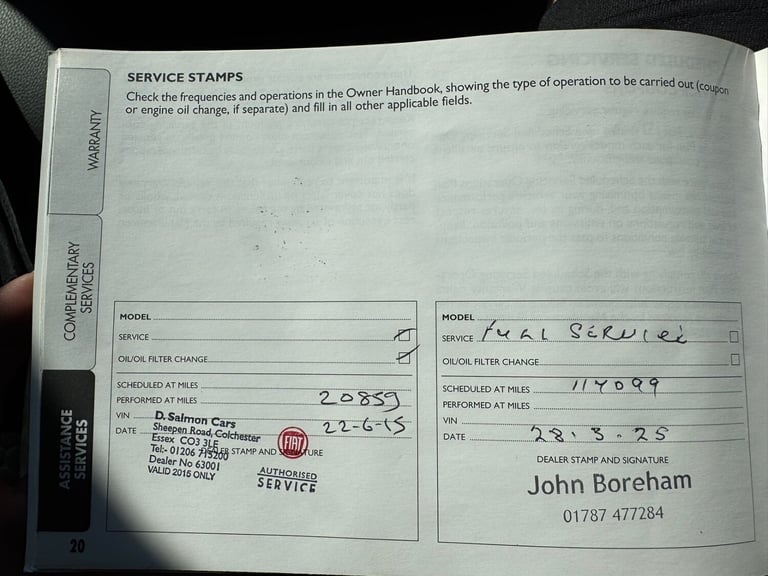 SERVICE STAMPS
Check the frequencies and operations in the Owner Handbook, showing the type of operation to be carried out (coupon
or engine oil change, if separate) and fill in all other applicable fields.
WARRANTY
COMPLEMENTARY
SERVICES
ASSISTANCE
SERVICES
MODEL
SERVICE
OIL/OIL FILTER CHANGE
SCHEDULED AT MILES
PERFORMED AT MILES 20859
VIN
DATE 22-6-15
DEALER STAMP AND SIGNATURE
D. Salmon Cars
Sheepen Road, Colchester
Essex CO3 3LE
Tel:- 01206 715200
Dealer No 63001
VALID 2015 ONLY
FIAT
AUTHORISED
SERVICE
MODEL
SERVICE Full SERVICE
OIL/OIL FILTER CHANGE
SCHEDULED AT MILES 117099
PERFORMED AT MILES
VIN
DATE 28.3.25
DEALER STAMP AND SIGNATURE
John Boreham
01787 477284
20